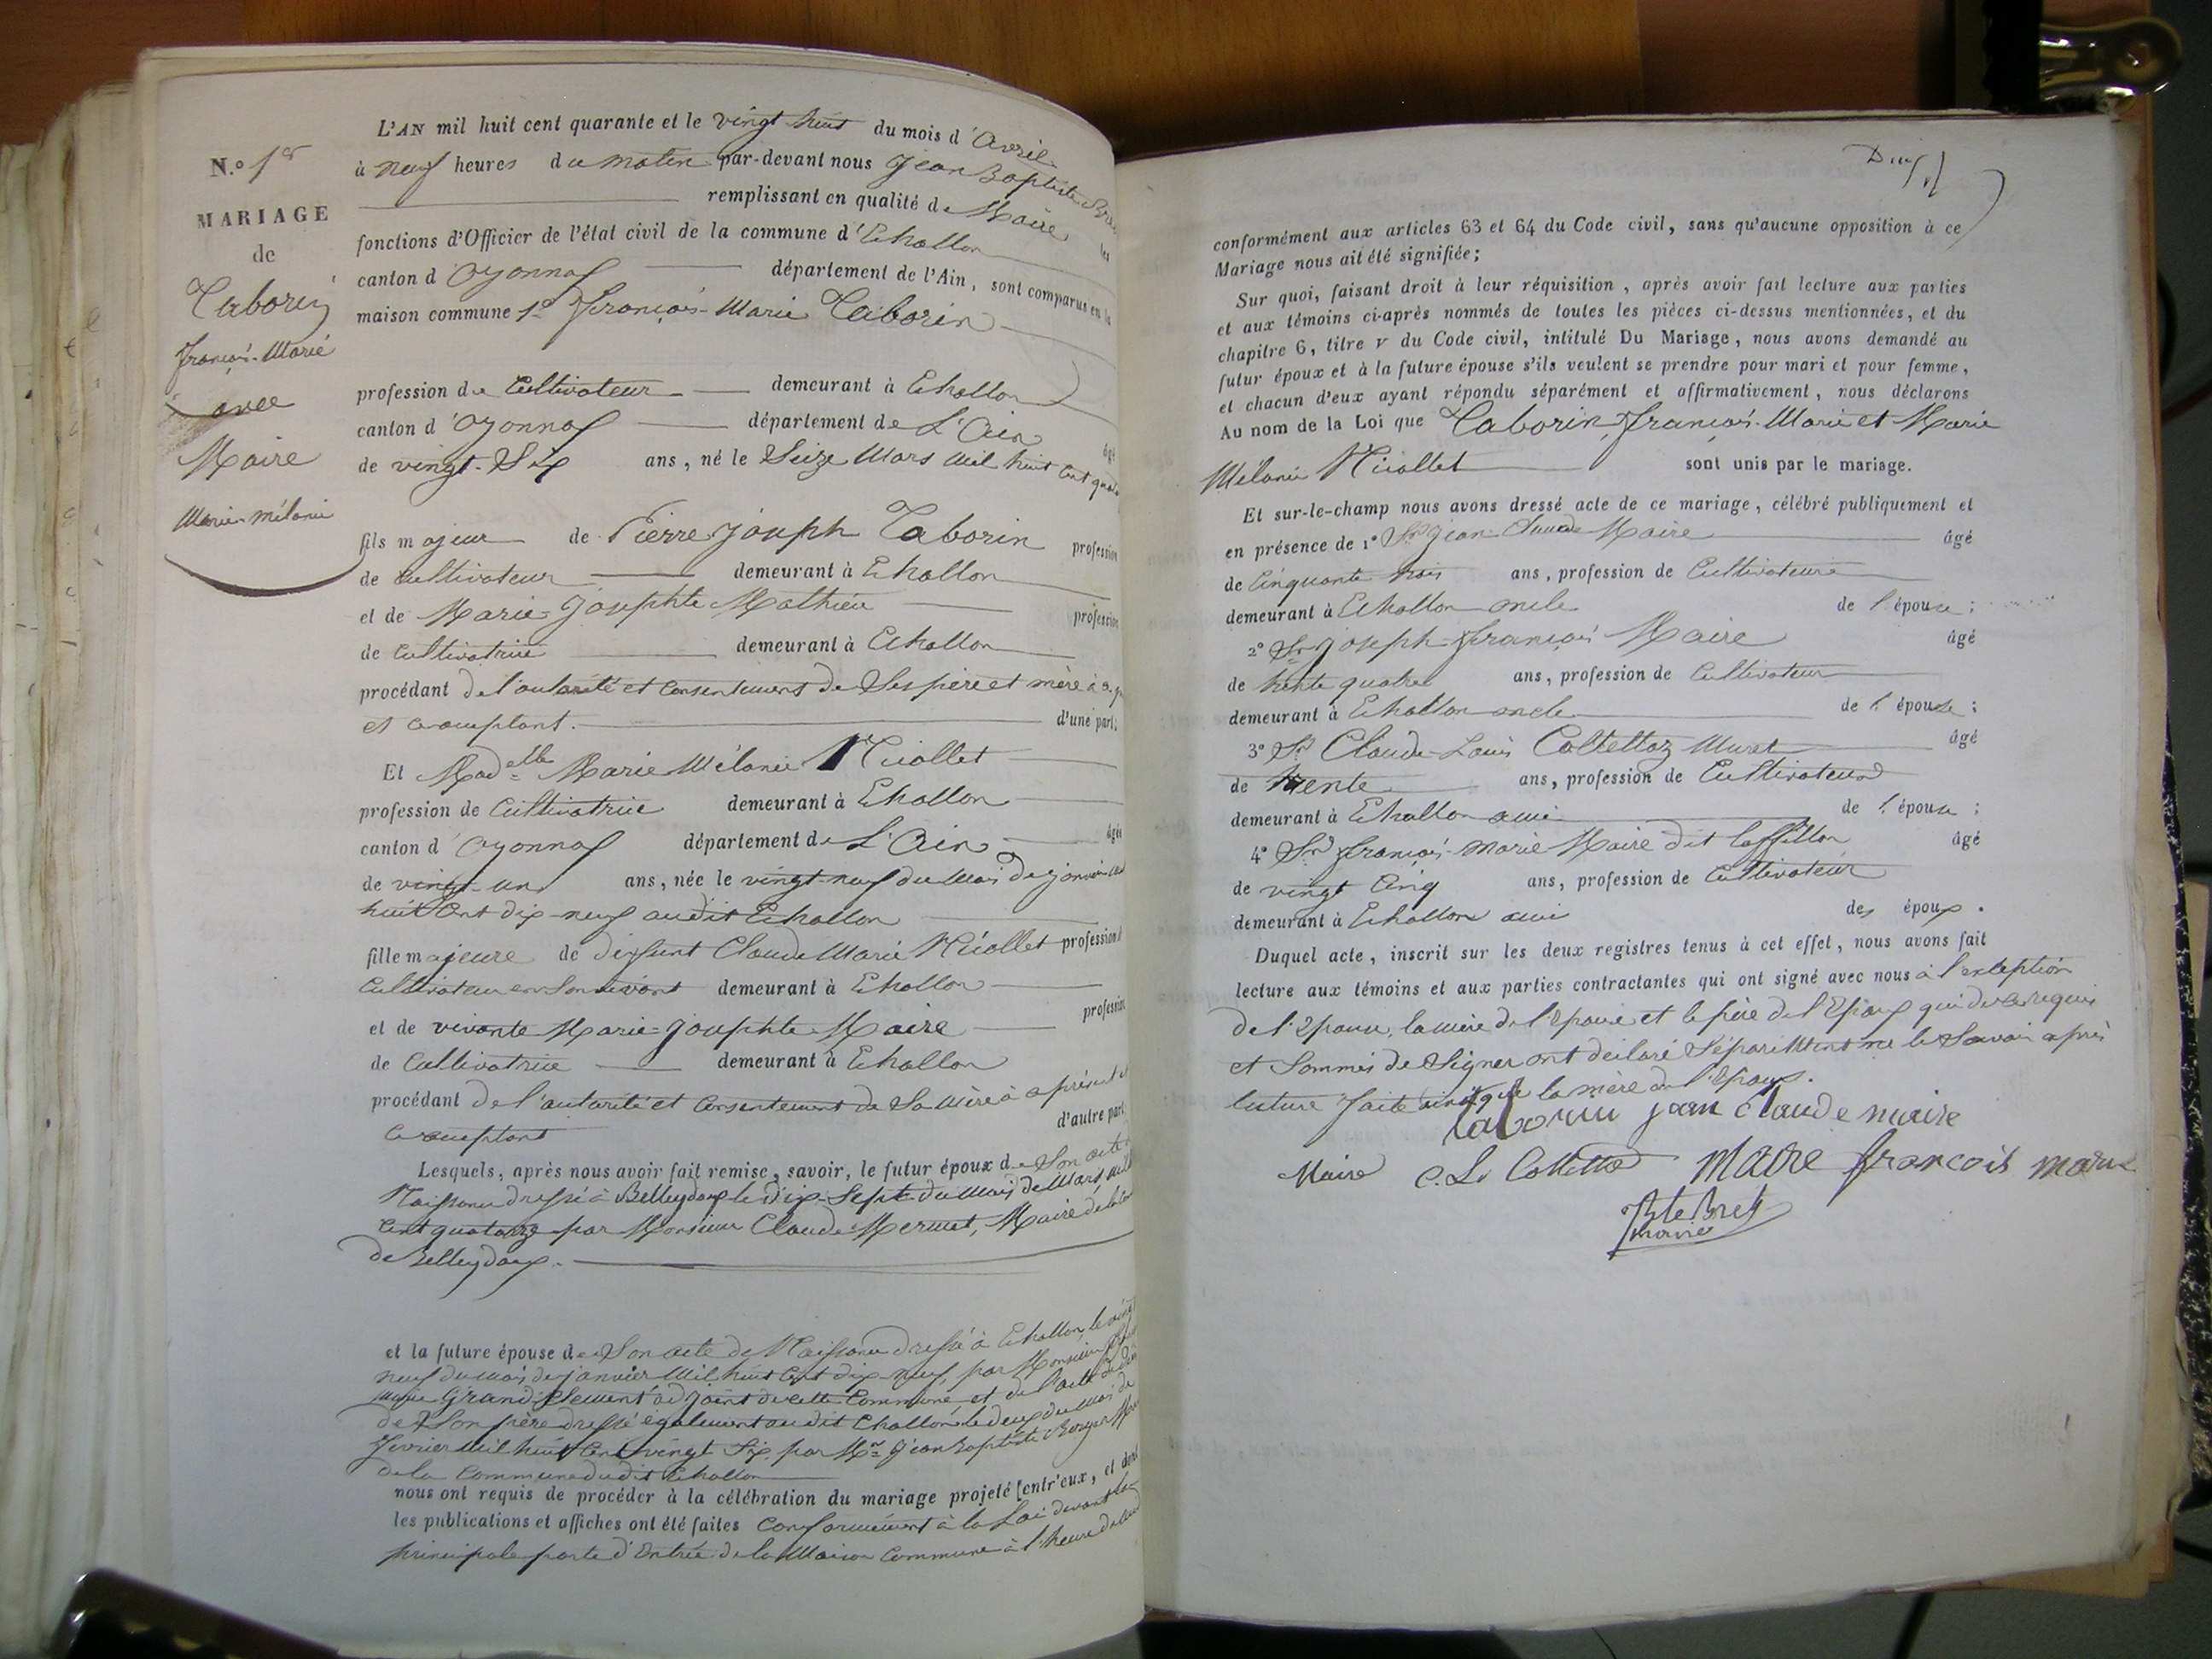 N.o 1er
MARIAGE
de
Taborin
François-Marie
avec
Maire
Marie Mélanie
L'AN mil huit cent quarante et le vingt huit du mois d'Avril
à neuf heures du matin par-devant nous Jean Baptiste
remplissant en qualité de Maire les
fonctions d'Officier de l'état civil de la commune d'Echallon
canton d'Oyonnax département de l'Ain, sont comparus en la
maison commune 1o François-Marie Taborin
profession de Cultivateur demeurant à Echallon
canton d'Oyonnax département de L'Ain âgé
de vingt-Six ans, né le Seize Mars mil huit Cent
fils majeur de Pierre Joseph Taborin profession
de Cultivateur demeurant à Echallon
et de Marie-Josephte Mathieu profession
de Cultivatrice demeurant à Echallon
procédant de l'autorité et Consentement de Ses père et mère à ce
et acceptant. d'une part;
Et Madelle Marie Mélanie Niollet
profession de Cultivatrice demeurant à Echallon
canton d'Oyonnax département de L'Ain âgée
de vingt-un ans, née le vingt-neuf du mois de janvier mil
huit Cent dix-neuf audit Echallon
fille majeure de deffunt Claude Marie Niollet profession
Cultivateur en Son vivant demeurant à Echallon
et de vivante Marie-Josephte Maire profession
de Cultivatrice demeurant à Echallon
procédant de l'autorité et Consentement de Sa mère à a présent et
acceptant d'autre part;
Lesquels, après nous avoir fait remise, savoir, le futur époux de Son acte
Naissance dressé à Belleydoux le dix-Sept du mois de Mars mil
Cent quatorze par Monsieur Claude Mermet, Maire de
de Belleydoux.
et la future épouse de Son acte de Naissance dressé à Echallon, le vingt
neuf du mois de janvier mil huit Cent dix-neuf, par Monsieur
Marie Grandclément adjoint de cette Commune et de l'acte de
de Son père dressé également audit Echallon le deux du mois de
fevrier mil huit Cent vingt Six par Mr Jean Baptiste
de la Commune dudit Echallon
nous ont requis de procéder à la célébration du mariage projeté entr'eux, et dont
les publications et affiches ont été faites Conformément à la Loi devant la
principale porte d'Entrée de la Maison Commune à l'heure de
conformément aux articles 63 et 64 du Code civil, sans qu'aucune opposition à ce
Mariage nous ait été signifiée;
Sur quoi, faisant droit à leur réquisition, après avoir fait lecture aux parties
et aux témoins ci-après nommés de toutes les pièces ci-dessus mentionnées, et du
chapitre 6, titre v du Code civil, intitulé Du Mariage, nous avons demandé au
futur époux et à la future épouse s'ils veulent se prendre pour mari et pour femme,
et chacun d'eux ayant répondu séparément et affirmativement, nous déclarons
Au nom de la Loi que Taborin, François-Marie et Marie
Mélanie Niollet sont unis par le mariage.
Et sur-le-champ nous avons dressé acte de ce mariage, célébré publiquement et
en présence de 1o Sr Jean Claude Maire âgé
de Cinquante trois ans, profession de Cultivateur
demeurant à Echallon oncle de l'épouse;
2o Sr Joseph-François Maire âgé
de trente quatre ans, profession de Cultivateur
demeurant à Echallon oncle de l'épouse;
3o Sr Claude-Louis Collettaz Muret âgé
de trente ans, profession de Cultivateur
demeurant à Echallon ami de l'épouse;
4o Sr François-Marie Maire dit âgé
de vingt Cinq ans, profession de Cultivateur
demeurant à Echallon ami des époux.
Duquel acte, inscrit sur les deux registres tenus à cet effet, nous avons fait
lecture aux témoins et aux parties contractantes qui ont signé avec nous à l'exception
de l'Epouse, la mère de l'Epouse et le père de l'Epoux qui de ce requis
et Sommés de Signer ont déclaré Séparément ne le Savoir après
lecture faite ainsi que la mère de l'époux.
taborin jean claude maire
Maire C. L. Collettaz Maire françois marie
maire